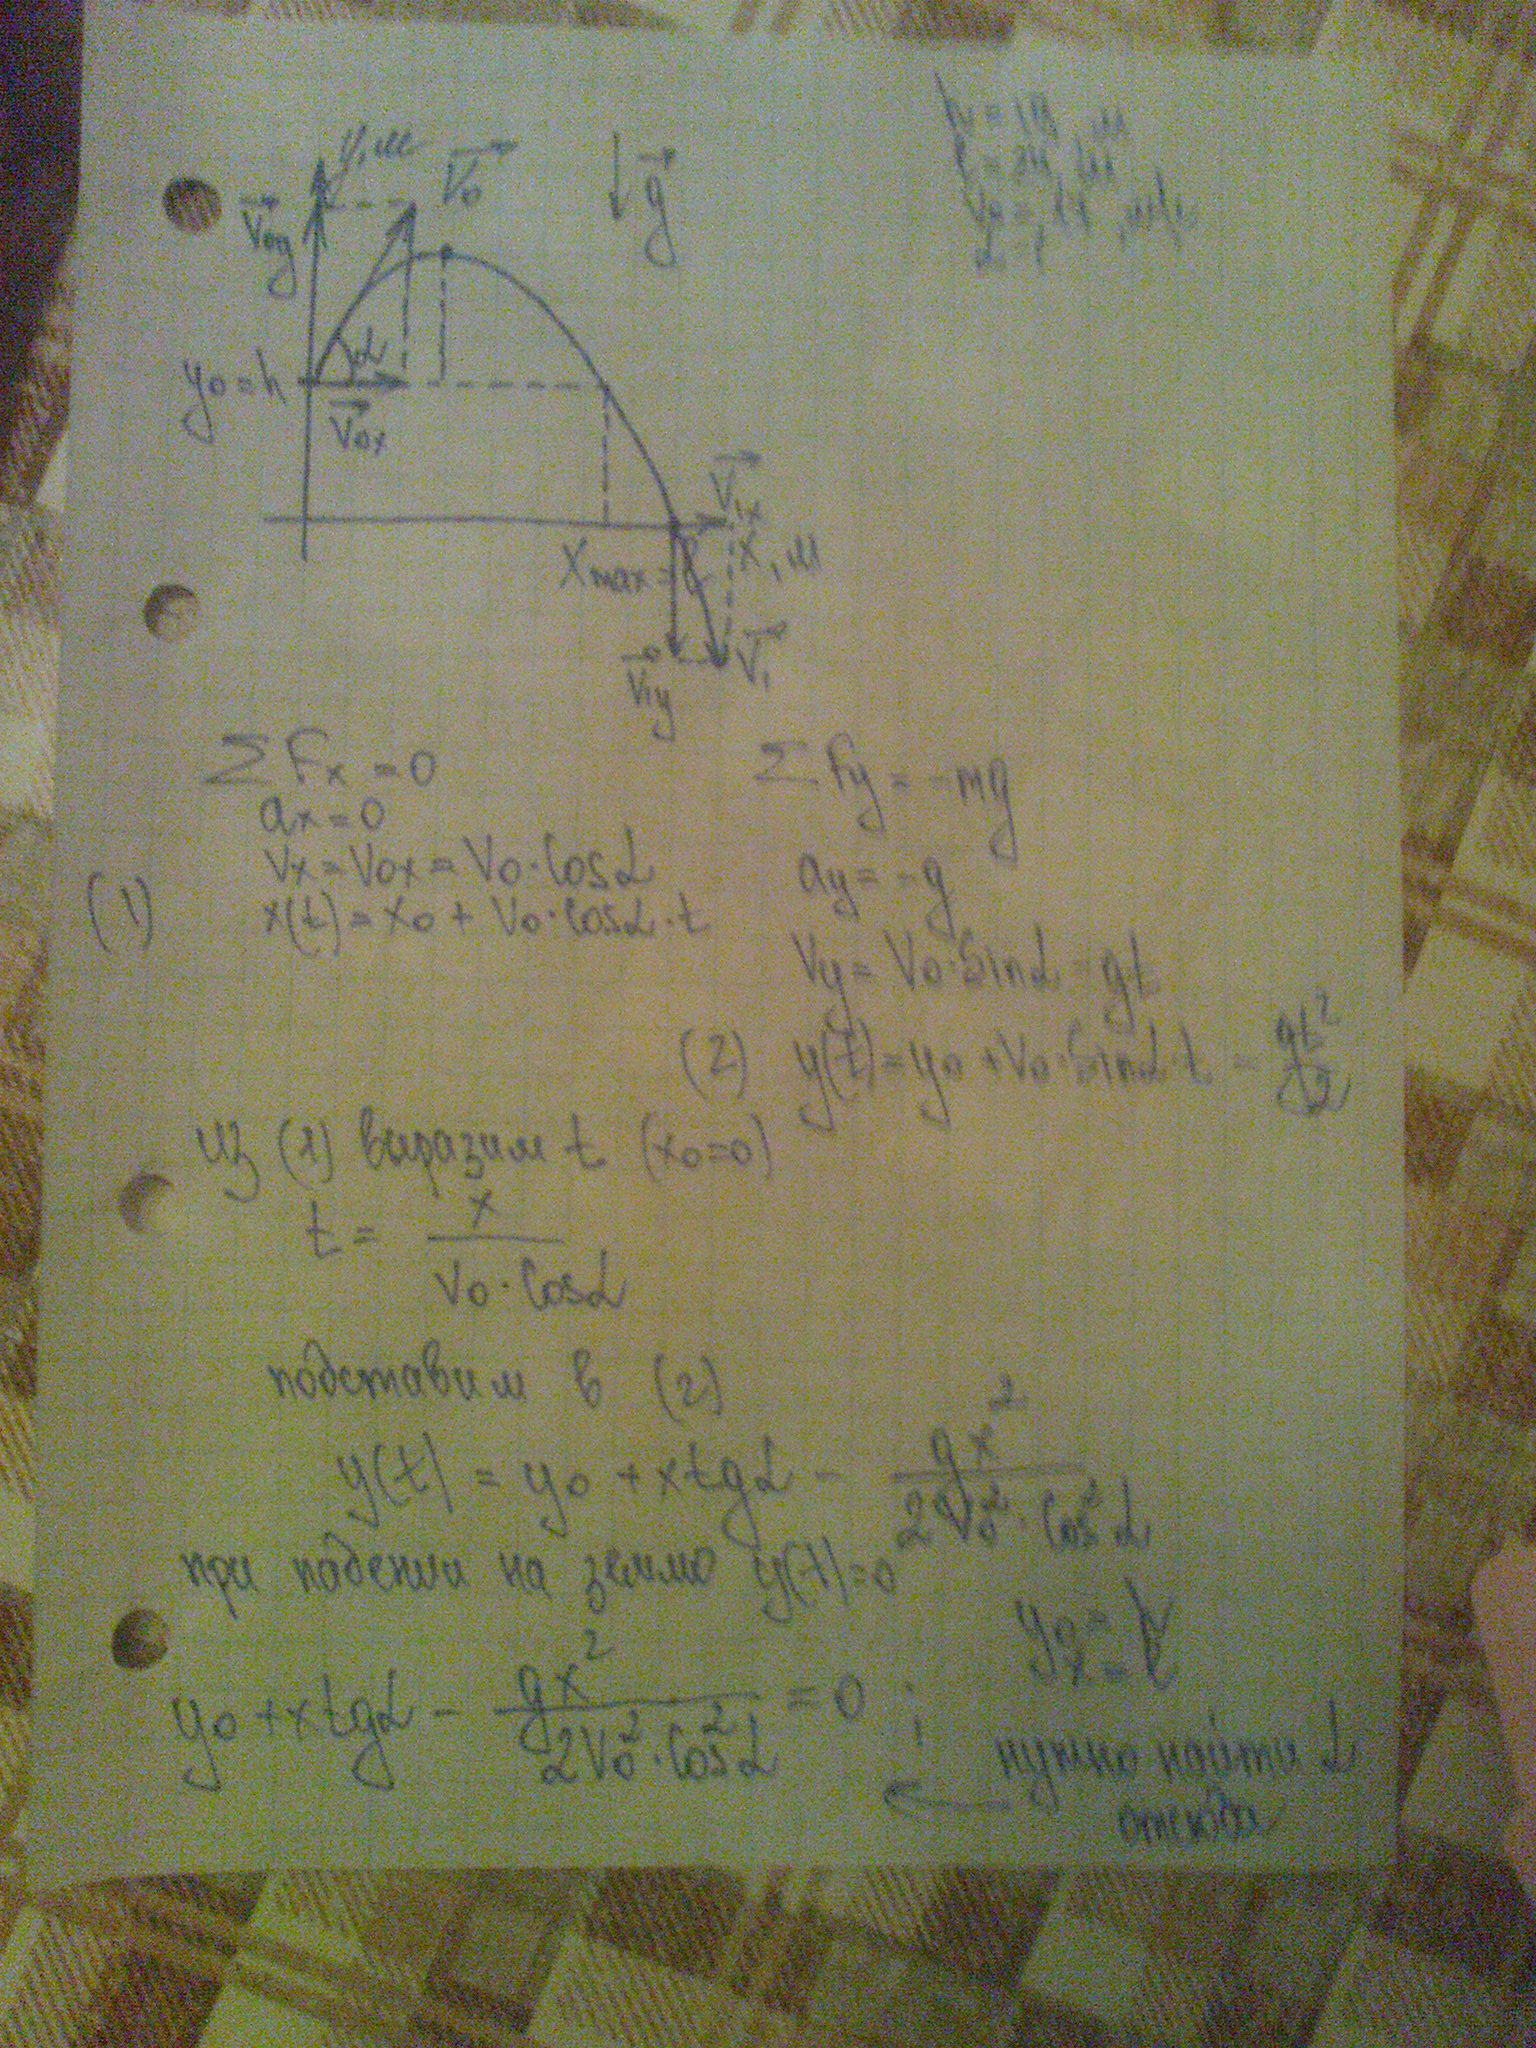 y, м
V₀
g
V₀y
α
y₀ = h
V₀x
V₁x
Xmax = l
x, м
V₁y
V₁
ΣFx = 0
ax = 0
Vx = V₀x = V₀·cosα
(1) x(t) = x₀ + V₀·cosα·t
ΣFy = -mg
ay = -g
Vy = V₀·sinα - gt
(2) y(t) = y₀ + V₀·sinα·t - gt²/2
из (1) выразим t (x₀=0)
t = x/(V₀·cosα)
подставим в (2)
y(t) = y₀ + x tgα - gx²/(2V₀²·cos²α)
при падении на землю y(t)=0
y₀ = h
x = l
y₀ + x tgα - gx²/(2V₀²·cos²α) = 0 ;
нужно найти α
отсюда